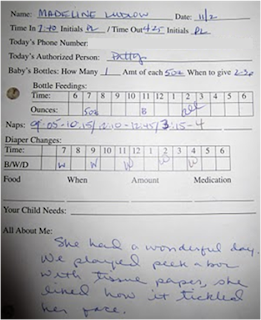 Name: MADELINE LUDLOW Date: 11/2
Time In 7:40 Initials PL / Time Out 4:25 Initials PL
Today's Phone Number:
Today's Authorized Person: Patty
Baby's Bottles: How Many 1 Amt of each 5oz When to give 2:30
Bottle Feedings:
Time: 6 7 8 9 10 11 12 1 2 3 4 5 6
Ounces: 5oz B
Naps: 9:05-10:15/ 12:10-12:45/ 3:15-4
Diaper Changes:
Time: 7 8 9 10 11 12 1 2 3 4 5 6
B/W/D W W W W W
Food When Amount Medication
Your Child Needs:
All About Me:
She had a wonderful day.
We played peek a boo
with tissue paper, she
liked how it tickled
her face.